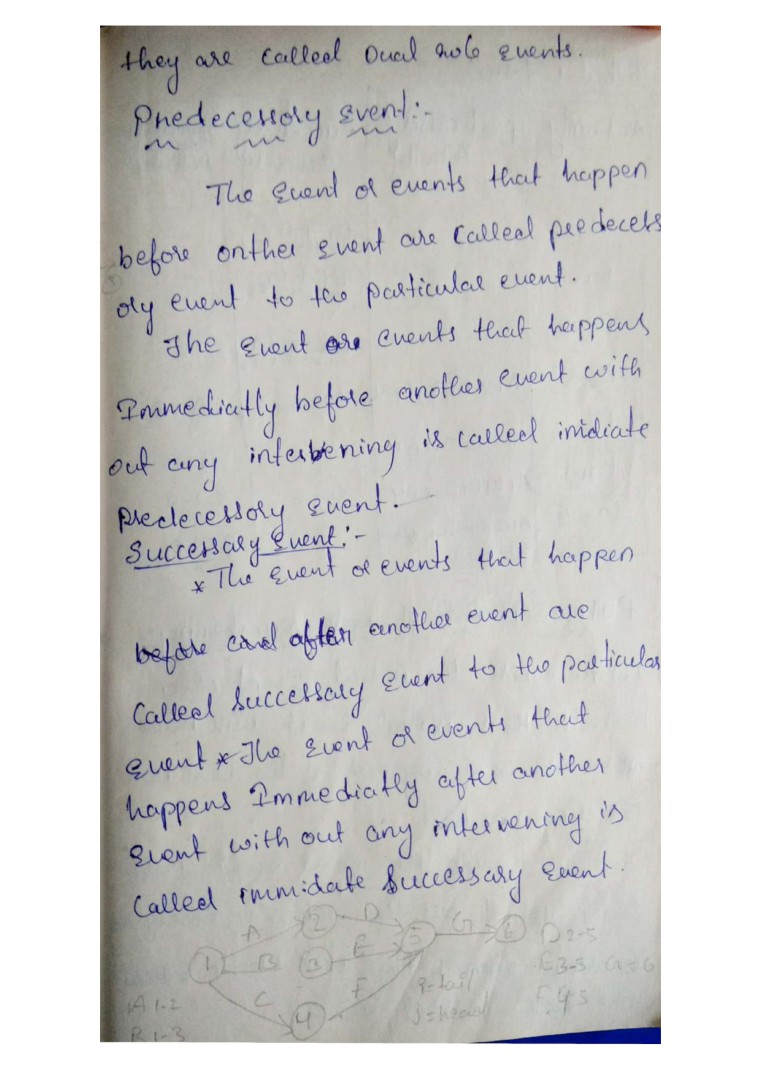 they are called Dual role events.
Predecessory Event:-
The Event or events that happen
before onther event are called predecess
ory event to the particular event.
The Event or events that happens
Immediatly before another event with
out any interbening is called imidiate
predecessory event.
Successary Event:-
* The Event or events that happen
before and after another event are
Called Successary event to the particular
event * The event or events that
happens Immediatly after another
Event with out any intervening is
Called immidate Successary Event.
A 2 D
1 B 3 E 5 G 6 D 2-5
E 3-5 G 5-6
C 4 F i=tail F 4-5
A 1-2 j=head
B 1-3